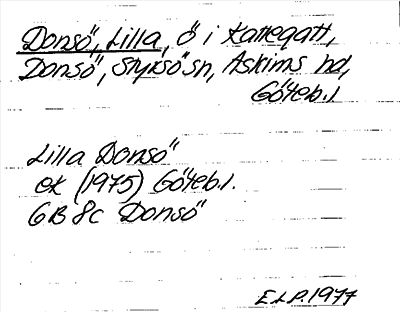 Donsö, Lilla, ö i Kattegatt,
Donsö, Styrsö sn, Askims hd,
Göteb.l
Lilla Donsö
ek (1975) Göteb.l.
GB 8c Donsö
ELP.1977